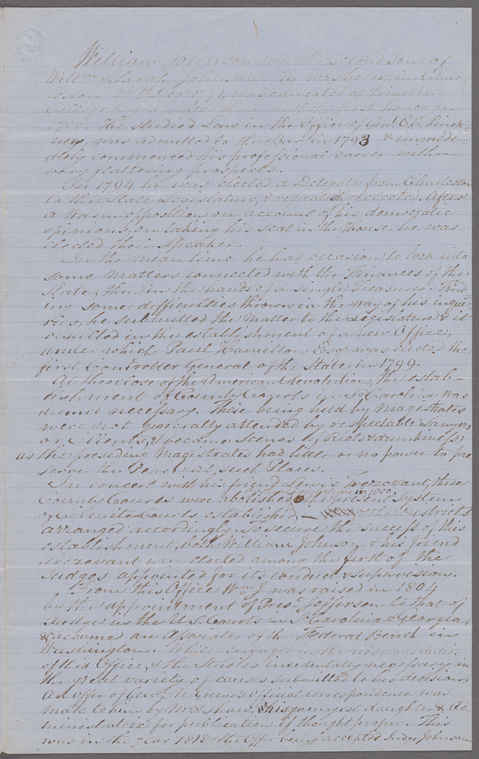 William Johnson was the second Son of
Willm & Sarah Johnson. He was born in Charleston
1771, was educated at Princeton
College &
He studied Law in the Office of Genl. C. C. Pinckney,
was admitted to the Bar in 1793 & immediately
commenced his professional career with
very flattering prospects.
In 1794 he was elected a Delegate from Charleston
to the State Legislature, & repeatedly reelected. After
a warm opposition on account of his democratic
opinions, on taking his seat in the House he was
elected their Speaker.
In the mean time he had occasion to look into
some matters connected with the Finances of the
State, then in the hands of a single Treasurer. Find
ing some difficulties thrown in the way of his inqui
ries, he submitted the matter to the Legislature & it
resulted in the establishment of a new Office,
under which Paul Hamilton Esqr was elected the
first Comptroller General of the State in 1799.
At the close of the American Revolution, the estab-
lishment of County Courts in So Carolina was
deemed necessary. These being held by Magistrates
were not generally attended by respectable Lawyers
or Clients, & became scenes of riot & drunkenness,
as the presiding Magistrates had little or no power to pre
serve the Peace at such Places.
In concert with his friend Lewis Trezevant, these
County Courts were abolished & the System
of Circuit Courts established, Districts
arranged accordingly. To secure the success of this
establishment, both William Johnson & his friend
Trezevant were elected among the first of the
Judges appointed for its conduct & supervision.
From this Office W. J. was raised in 1804
by the appointment of Pres. Jefferson to that of
Judge in the U. S. Courts in So Carolina & Georgia,
& became an Associate of the Federal Bench in
Washington. While engaged in the
of this Office, & the Studies incidentally necessary in
the great variety of causes submitted to his decision,
an offer of Genl. N. Greene's official correspondence was
made to him by Mrs Shaw, his youngest daughter & Ad
ministratrix for publication if thought proper. This
was in the year 1818 & the Offer being accepted Judge Johnson